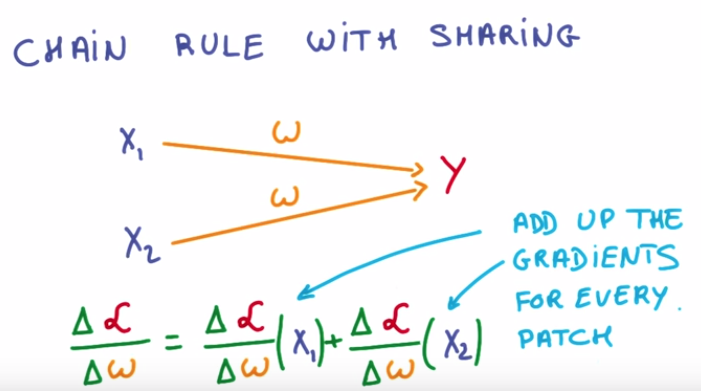 CHAIN RULE WITH SHARING
X₁ ω
ω Y
X₂
ADD UP THE
GRADIENTS
FOR EVERY.
PATCH
Δℒ/Δω = Δℒ/Δω (X₁) + Δℒ/Δω (X₂)